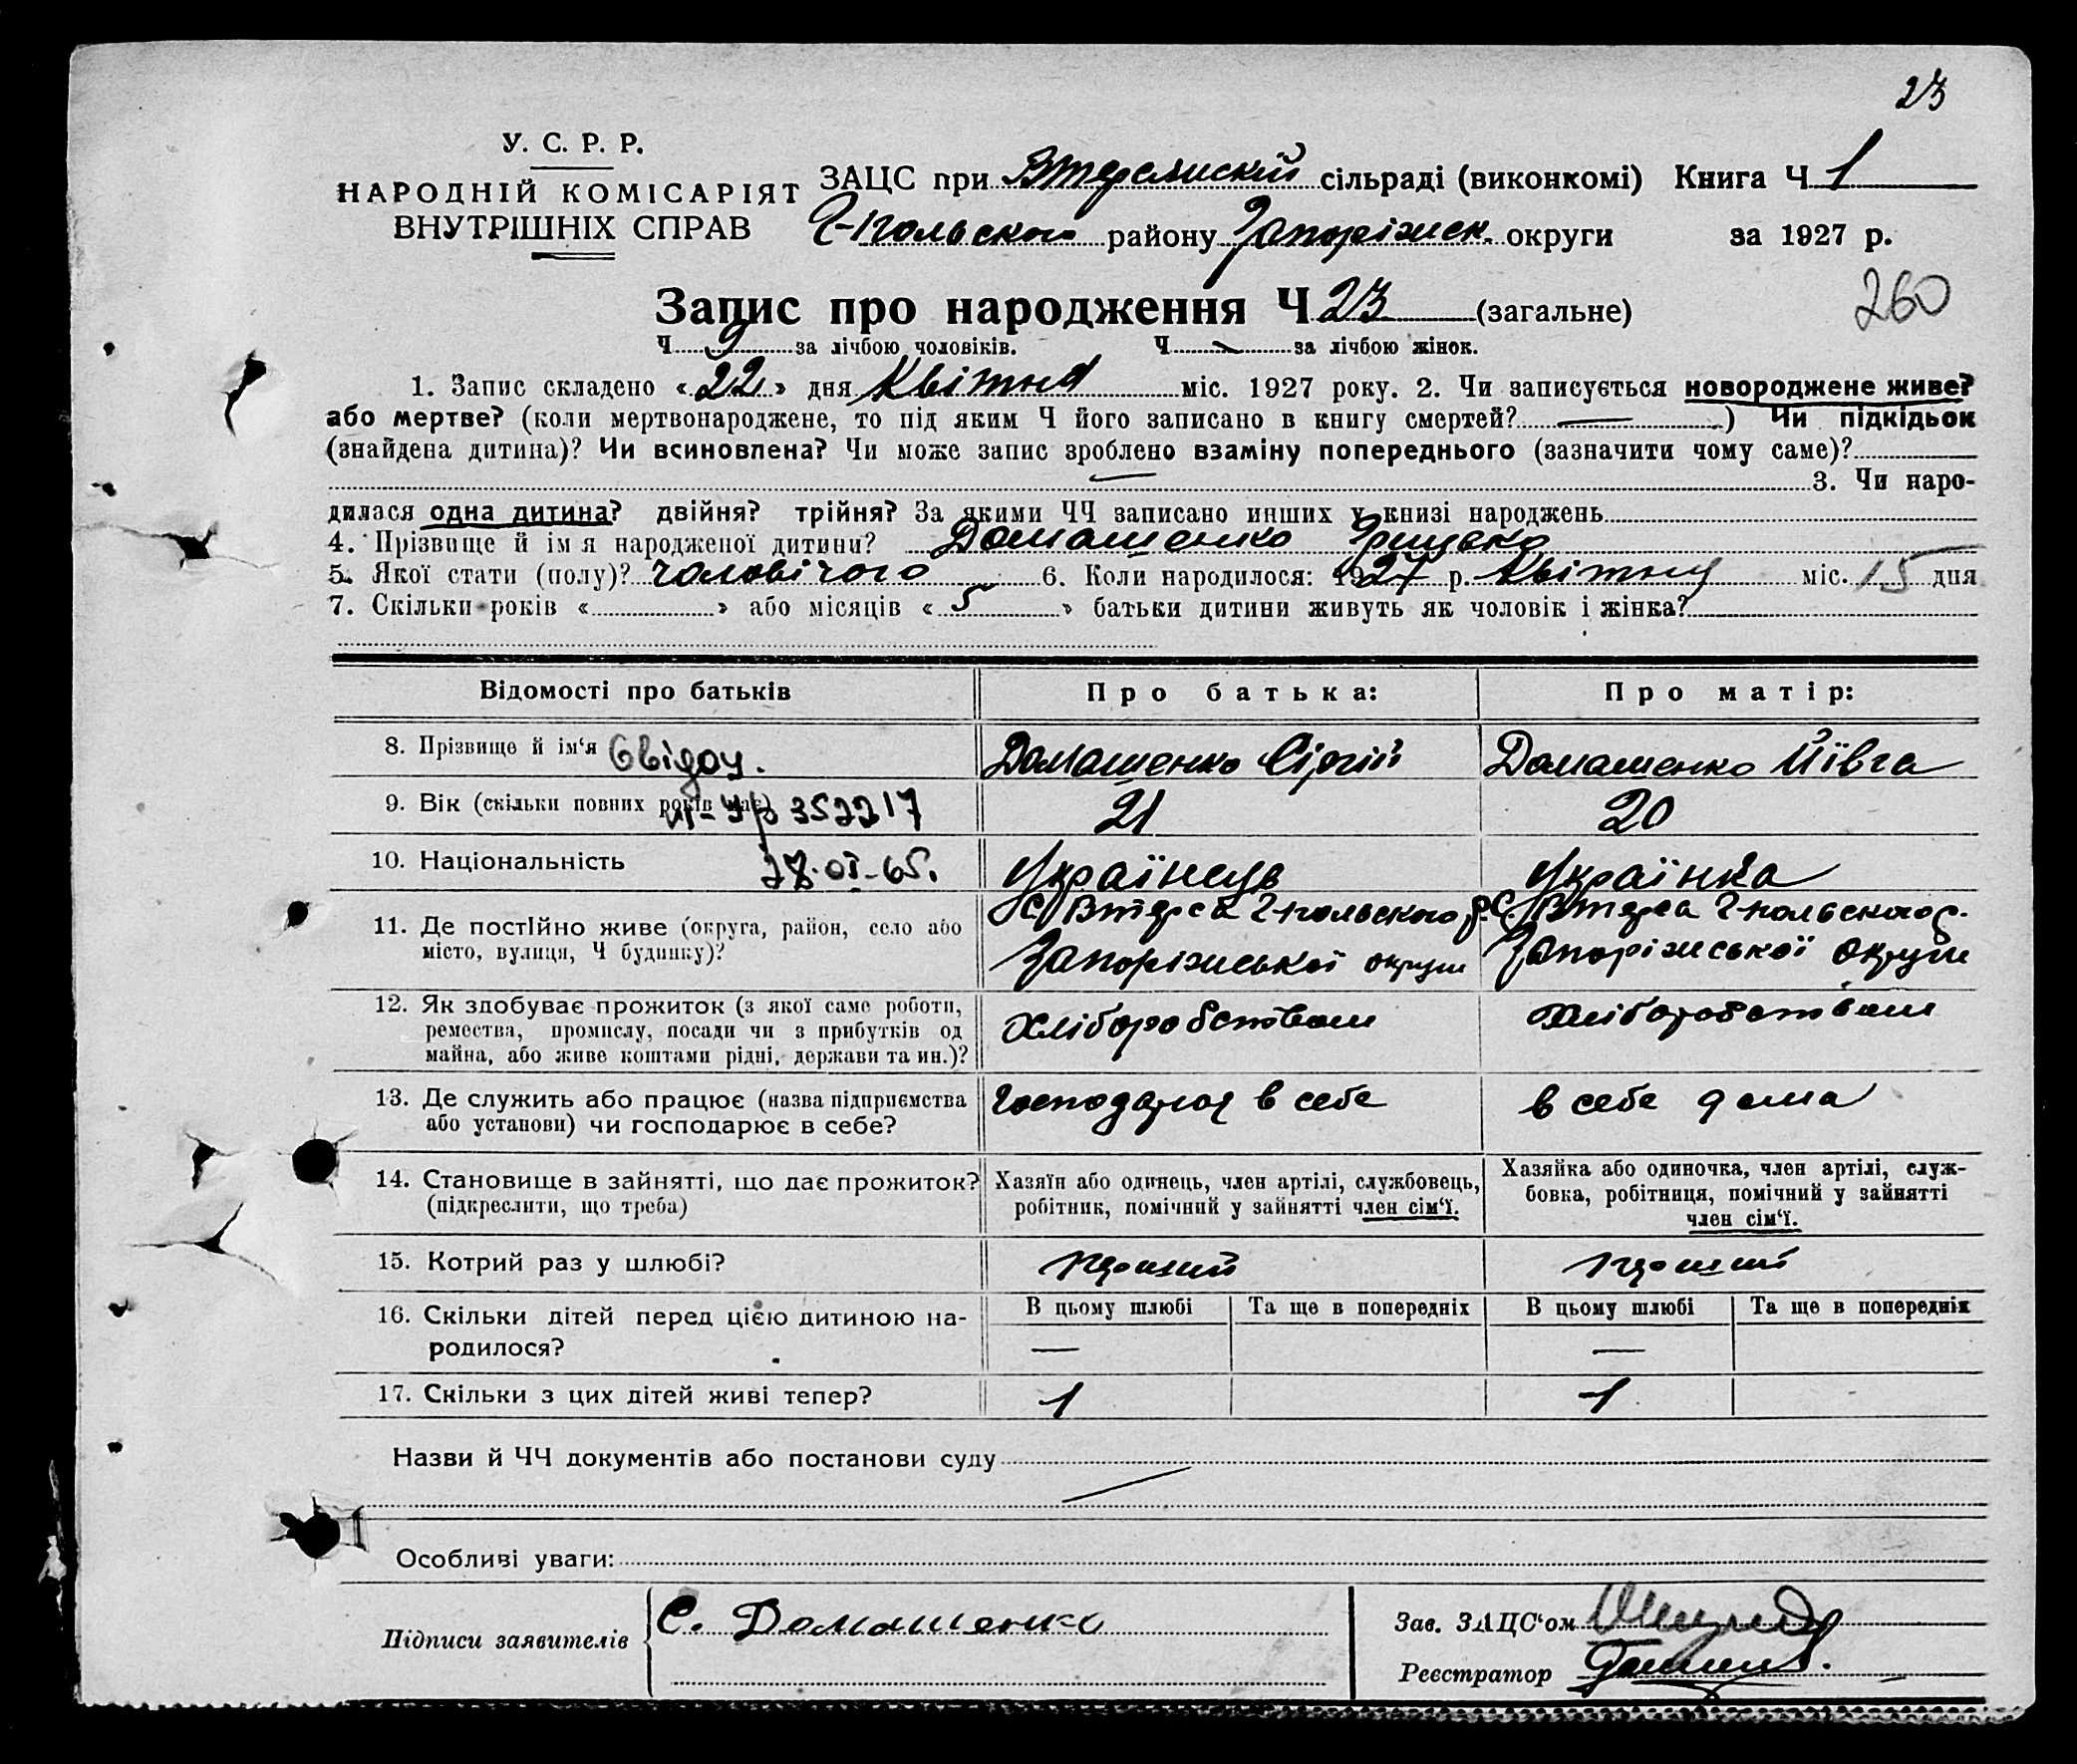 23
У. С. Р. Р.
НАРОДНІЙ КОМІСАРІЯТ
ВНУТРІШНІХ СПРАВ
ЗАЦС при сільраді (виконкомі) Книга Ч 1
району Запоріжск. округи за 1927 р.
Запис про народження Ч 23 (загальне)
260
Ч 9 за лічбою чоловіків. Ч за лічбою жінок.
1. Запис складено « 22 » дня Квітня міс. 1927 року. 2. Чи записується новороджене живе?
або мертве? (коли мертвонароджене, то під яким Ч його записано в книгу смертей? — ) Чи підкідьок
(знайдена дитина)? Чи всиновлена? Чи може запис зроблено взаміну попереднього (зазначити чому саме)?
— 3. Чи наро-
дилася одна дитина? двійня? трійня? За якими ЧЧ записано инших у книзі народжень
4. Прізвище й імя народженої дитини? Домашенко Грицько
5. Якої стати (полу)? чоловічого 6. Коли народилося: 1927 р. Квітня міс. 15 дня
7. Скільки років « » або місяців « 5 » батьки дитини живуть як чоловік і жінка?
Відомості про батьків Про батька: Про матір:
8. Прізвище й ім‘я Свідоц. Домашенко Сіргій Домашенко Йівга
9. Вік (скільки повних років має) 352217 21 20
10. Національність -65. Українець Українка
11. Де постійно живе (округа, район, село або
місто, вулиця, Ч будинку)?
Запоріжської округи Запоріжської округи
12. Як здобуває прожиток (з якої саме роботи,
ремества, промислу, посади чи з прибутків од
майна, або живе коштами рідні, держави та ин.)?
хліборобством хліборобством
13. Де служить або працює (назва підприємства
або установи) чи господарює в себе?
господарює в себе в себе дома
14. Становище в зайнятті, що дає прожиток?
(підкреслити, що треба)
Хазяїн або одинець, член артілі, службовець,
робітник, помічний у зайнятті член сім‘ї.
Хазяйка або одиночка, член артілі, служ-
бовка, робітниця, помічний у зайнятті
член сім‘ї.
15. Котрий раз у шлюбі?
16. Скільки дітей перед цією дитиною на-
родилося?
В цьому шлюбі Та ще в попередніх В цьому шлюбі Та ще в попередніх
— —
17. Скільки з цих дітей живі тепер? 1 1
Назви й ЧЧ документів або постанови суду
Особливі уваги:
Підписи заявителів С. Домашенко
Зав. ЗАЦС‘ом
Реєстратор